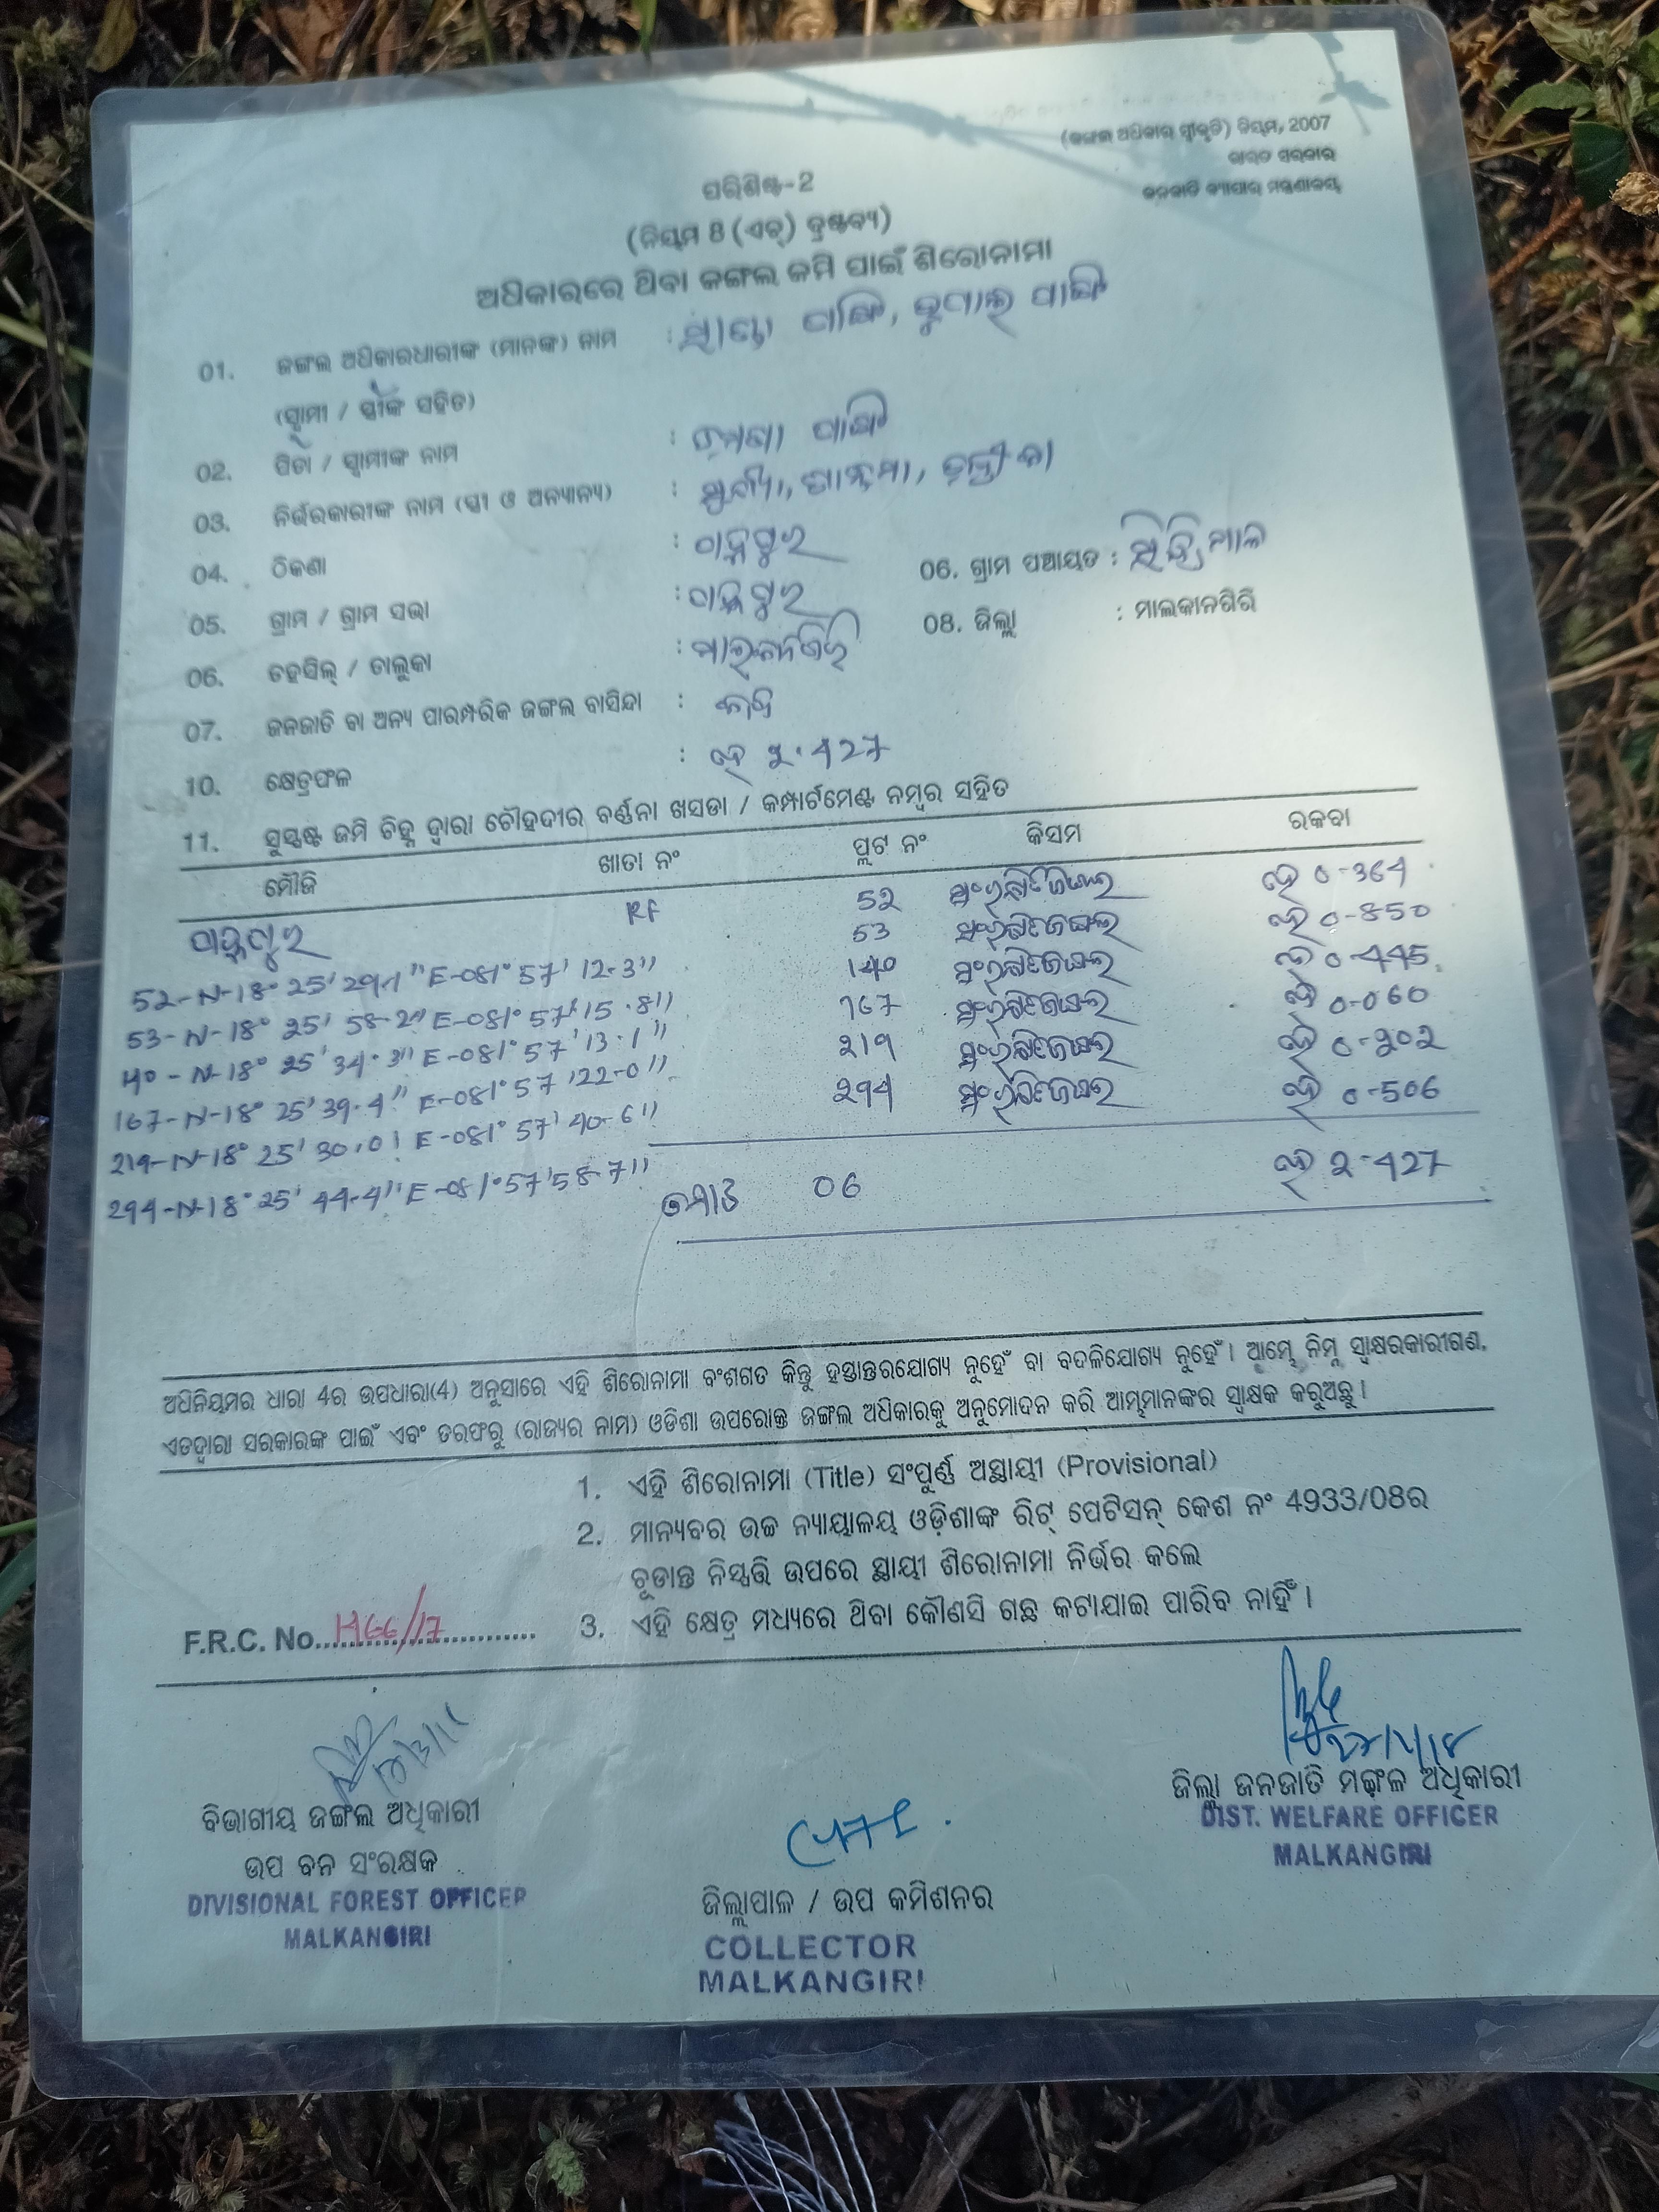 (ଜଙ୍ଗଲ ଅଧିକାର ସ୍ୱୀକୃତି) ନିୟମ, 2007
ଭାରତ ସରକାର
ଜନଜାତି ବ୍ୟାପାର ମନ୍ତ୍ରଣାଳୟ
ପରିଶିଷ୍ଟ-2
(ନିୟମ 8 (ଏଚ୍) ଦ୍ରଷ୍ଟବ୍ୟ)
ଅଧିକାରରେ ଥିବା ଜଙ୍ଗଲ ଜମି ପାଇଁ ଶିରୋନାମା
01. ଜଙ୍ଗଲ ଅଧିକାରଧାରୀଙ୍କ (ମାନଙ୍କ) ନାମ :
(ସ୍ୱାମୀ / ସ୍ତ୍ରୀଙ୍କ ସହିତ)
02. ପିତା / ସ୍ୱାମୀଙ୍କ ନାମ :
03. ନିର୍ଭରକାରୀଙ୍କ ନାମ (ସ୍ତ୍ରୀ ଓ ଅନ୍ୟାନ୍ୟ) :
04. ଠିକଣା :
05. ଗ୍ରାମ / ଗ୍ରାମ ସଭା : 06. ଗ୍ରାମ ପଞ୍ଚାୟତ :
06. ତହସିଲ୍ / ତାଲୁକା : ମାଲକାନଗିରି 08. ଜିଲ୍ଲା : ମାଲକାନଗିରି
07. ଜନଜାତି ବା ଅନ୍ୟ ପାରମ୍ପରିକ ଜଙ୍ଗଲ ବାସିନ୍ଦା :
10. କ୍ଷେତ୍ରଫଳ : ହେ 2.427
11. ସୁସ୍ପଷ୍ଟ ଜମି ଚିହ୍ନ ଦ୍ୱାରା ଚୌହଦୀର ବର୍ଣ୍ଣନା ଖସଡା / କମ୍ପାର୍ଟମେଣ୍ଟ ନମ୍ବର ସହିତ
ମୌଜି ଖାତା ନଂ ପ୍ଲଟ ନଂ କିସମ ରକବା
RF 52 ସଂରକ୍ଷିତ ଜଙ୍ଗଲ ହେ 0-364
53 ସଂରକ୍ଷିତ ଜଙ୍ଗଲ ହେ 0-850
140 ସଂରକ୍ଷିତ ଜଙ୍ଗଲ ହେ 0-445
167 ସଂରକ୍ଷିତ ଜଙ୍ଗଲ ହେ 0-060
219 ସଂରକ୍ଷିତ ଜଙ୍ଗଲ ହେ 0-202
294 ସଂରକ୍ଷିତ ଜଙ୍ଗଲ ହେ 0-506
52-N-18° 25' 29.1" E-081° 57' 12.3"
53-N-18° 25' 58.2" E-081° 57' 15.8"
40-N-18° 25' 34.3" E-081° 57' 13.1"
167-N-18° 25' 39.4" E-081° 57' 22.0"
219-N-18° 25' 30.0' E-081° 57' 40.6"
294-N-18° 25' 44.4" E-081° 57' 58.7"
ମୋଟ 06 ହେ 2-427
ଅଧିନିୟମର ଧାରା 4ର ଉପଧାରା(4) ଅନୁସାରେ ଏହି ଶିରୋନାମା ବଂଶଗତ କିନ୍ତୁ ହସ୍ତାନ୍ତରଯୋଗ୍ୟ ନୁହେଁ ବା ବଦଳିଯୋଗ୍ୟ ନୁହେଁ । ଆମ୍ଭେ ନିମ୍ନ ସ୍ୱାକ୍ଷରକାରୀଗଣ,
ଏତଦ୍ୱାରା ସରକାରଙ୍କ ପାଇଁ ଏବଂ ତରଫରୁ (ରାଜ୍ୟର ନାମ) ଓଡିଶା ଉପରୋକ୍ତ ଜଙ୍ଗଲ ଅଧିକାରକୁ ଅନୁମୋଦନ କରି ଆମ୍ଭମାନଙ୍କର ସ୍ୱାକ୍ଷକ କରୁଅଛୁ ।
1. ଏହି ଶିରୋନାମା (Title) ସଂପୂର୍ଣ୍ଣ ଅସ୍ଥାୟୀ (Provisional)
2. ମାନ୍ୟବର ଉଚ୍ଚ ନ୍ୟାୟାଳୟ ଓଡ଼ିଶାଙ୍କ ରିଟ୍ ପେଟିସନ୍ କେଶ ନଂ 4933/08ର
ଚୂଡାନ୍ତ ନିସ୍ପତ୍ତି ଉପରେ ସ୍ଥାୟୀ ଶିରୋନାମା ନିର୍ଭର କଲେ
3. ଏହି କ୍ଷେତ୍ର ମଧ୍ୟରେ ଥିବା କୌଣସି ଗଛ କଟାଯାଇ ପାରିବ ନାହିଁ ।
F.R.C. No.
ବିଭାଗୀୟ ଜଙ୍ଗଲ ଅଧିକାରୀ
ଉପ ବନ ସଂରକ୍ଷକ
DIVISIONAL FOREST OFFICER
MALKANGIRI
ଜିଲ୍ଲାପାଳ / ଉପ କମିଶନର
COLLECTOR
MALKANGIRI
ଜିଲ୍ଲା ଜନଜାତି ମଙ୍ଗଳ ଅଧିକାରୀ
DIST. WELFARE OFFICER
MALKANGIRI